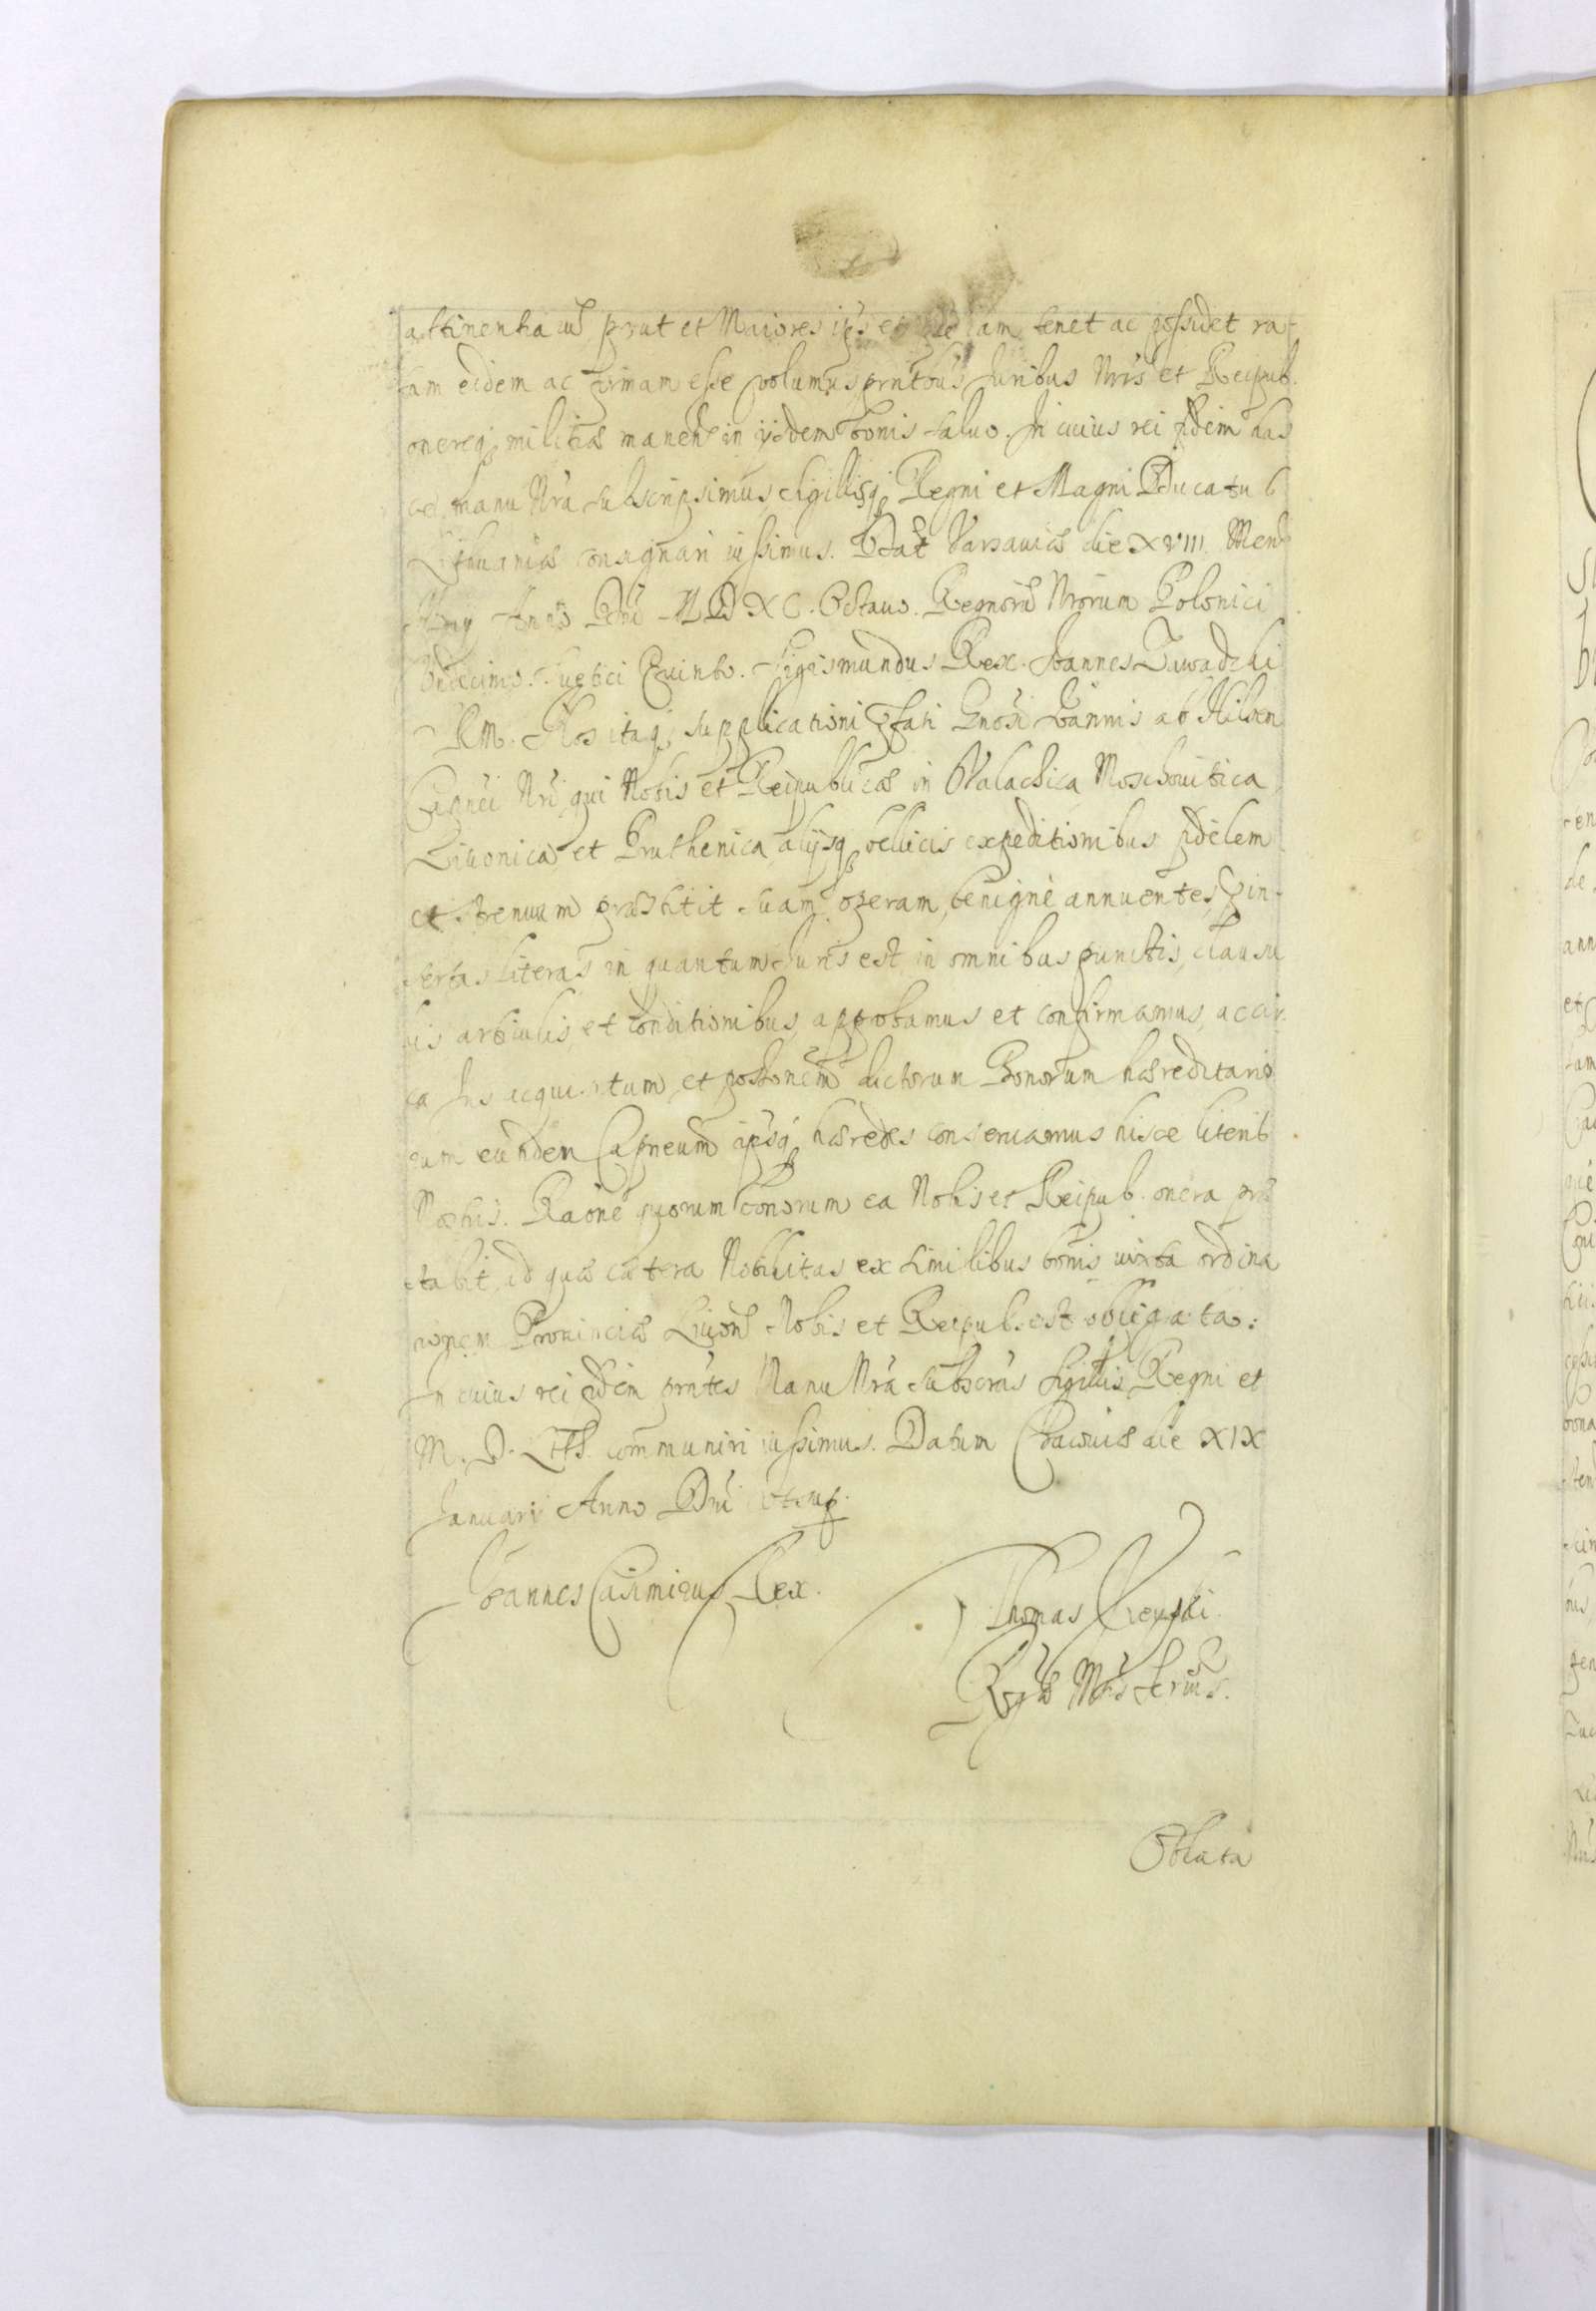 attinentia eius prout et Maiores ips et ipse iam tenet ac possidet ra-
tam eidem ac firmam esse volumus prntbus Juribus Nris et Reipub.
onereq militiæ manen in ijsdem bonis saluo. In cuius rei fidem has
ce manu Nra subscripsimus, sigillisq Regni et Magni Ducatus
Lithuaniæ consignari iussimus. Dat Varsauiæ die XVIII. Men
Anno Dni MDXC. Octauo. Regnoru Nrorum Polonici
Vndecimo. Suetici Quinto. Sigismundus Rex. Ioannes Zawadzki
RM. Nos itaq supplicationi pfati Gnosi Ioannis ab Hilsen
Capnei Nri qui Nobis et Reipublicæ in Valachica Moschouitica
Liuonica et Pruthenica, alijsq bellicis expeditionibus fidelem
et strenuam præstitit suam operam, benignè annuentes, pin-
sertas literas in quantum Iuris est in omnibus punctis, clausu
lis articulis, et conditionibus, approbamus et confirmamus, ac cir-
ca Ius acquisitum, et possonem dictorum Bonorum hæreditario
rum eundem Capneum ipsiq hæredes conseruamus hisce literis
Nostris. Raone quorum bonorum ea Nobis et Reipub. onera præ
stabit, ad quæ cætera Nobilitas ex similibus bonis iuxta ordina
nonem Prouinciæ Liuon Nobis et Reipub. est obligata:
In cuius rei fidem prntes Manu Nra subscras sigillis Regni et
M. D. Lith. communiri iussimus. Datum Cracouiæ die XIX
Ianuarii Anno Dni utsup.
Ioannes Casimirus Rex.
Thomas Vieyski
Rgiæ Mtis Scrius.
Oblata